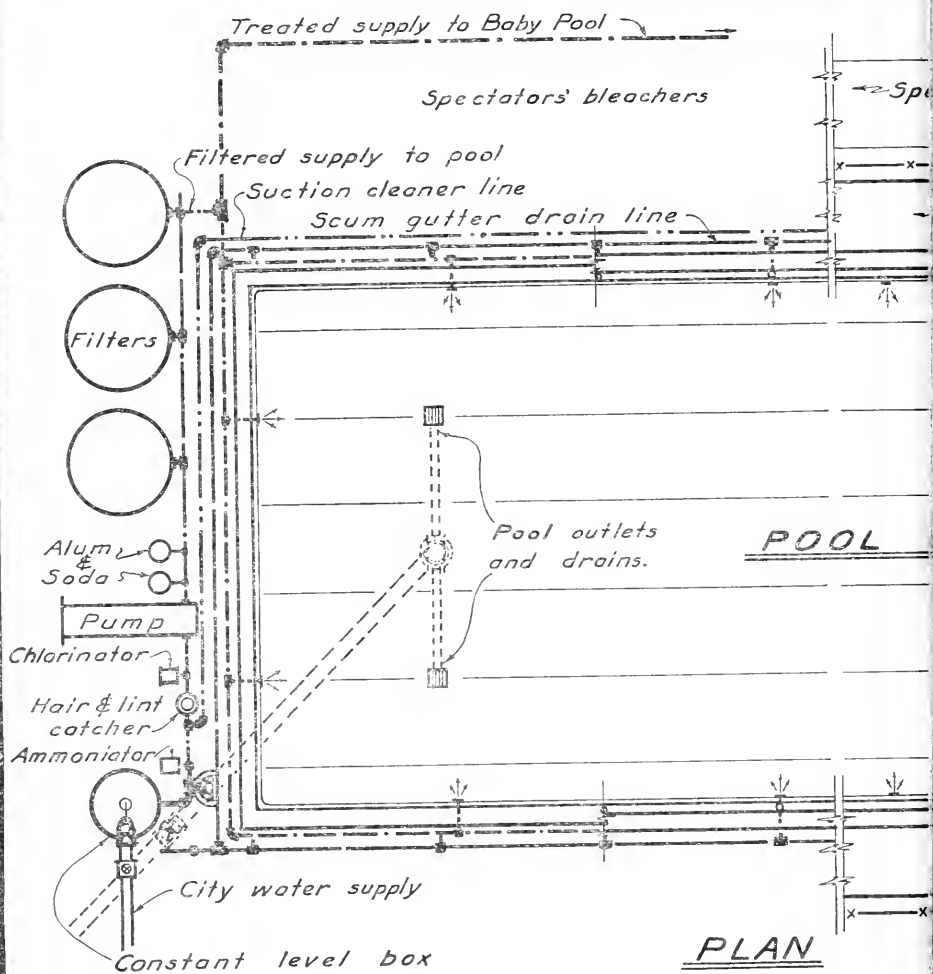 Treated supply to Baby Pool
Spectators' bleachers
Filtered supply to pool
Suction cleaner line
Scum gutter drain line
Filters
Alum
&
Soda
Pool outlets
and drains.
POOL
Pump
Chlorinator
Hair & lint
catcher
Ammoniator
City water supply
Constant level box
PLAN